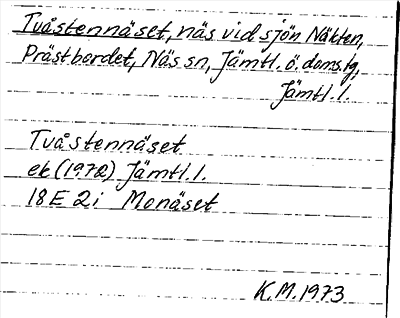 Tvåstennäset, näs vid sjön Näkten,
Prästbordet, Näs sn, Jämtl. ö. doms.tg,
Jämtl. l.
Tvåstennäset
ek (1972) Jämtl. l.
18E 2i Monäset
K.M. 1973